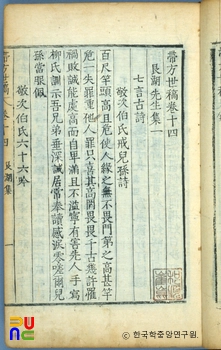 帶方世稿卷十四
艮湖先生集
七言古詩
敬次伯氏戒兒孫詩
百尺竿頭高且危使人緣之無不畏門第之高甚竿
危一失罪重他人罪只喜其高罔畏畏千古幾許罹
福敗誠能處高而自卑滿且不溢寧有害先人手寫
柳氏誡示吾兄弟垂深誠居常奉讀感淚零嗟爾兒
孫當服佩
敬次伯氏六十六吟
帶方世稿 卷十四 艮湖集
© 한국학중앙연구원.